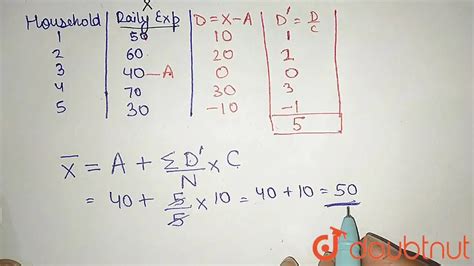 X
Household Daily Exp D=X-A D'=D/C
1 50 10 1
2 60 20 2
3 40-A 0 0
4 70 30 3
5 30 -10 -1
5
X̄ = A + ΣD'/N × C
= 40 + 5/5 × 10 = 40 + 10 = 50
doubtnut